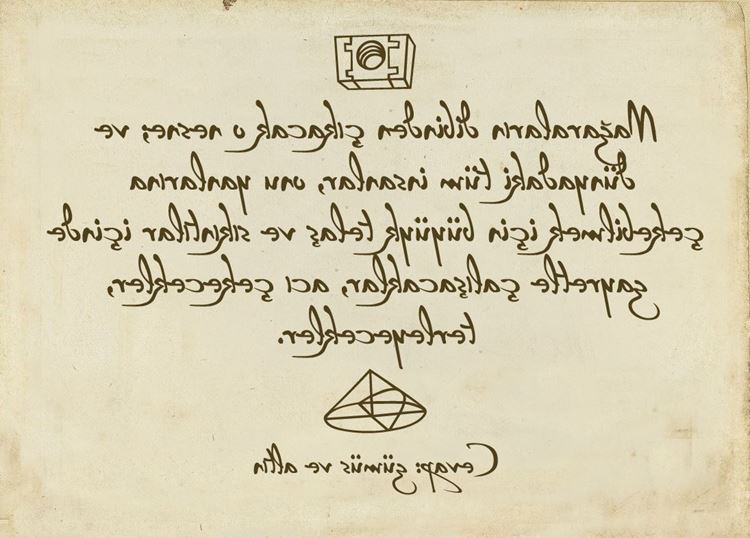 Mağaraların dibinden çıkacak o nesne; ve
dünyadaki tüm insanlar, onu yanlarına
çekebilmek için büyük telaş ve sıkıntılar içinde
gayretle çalışacaklar, acı çekecekler,
terleyecekler.
Cevap: gümüş ve altın